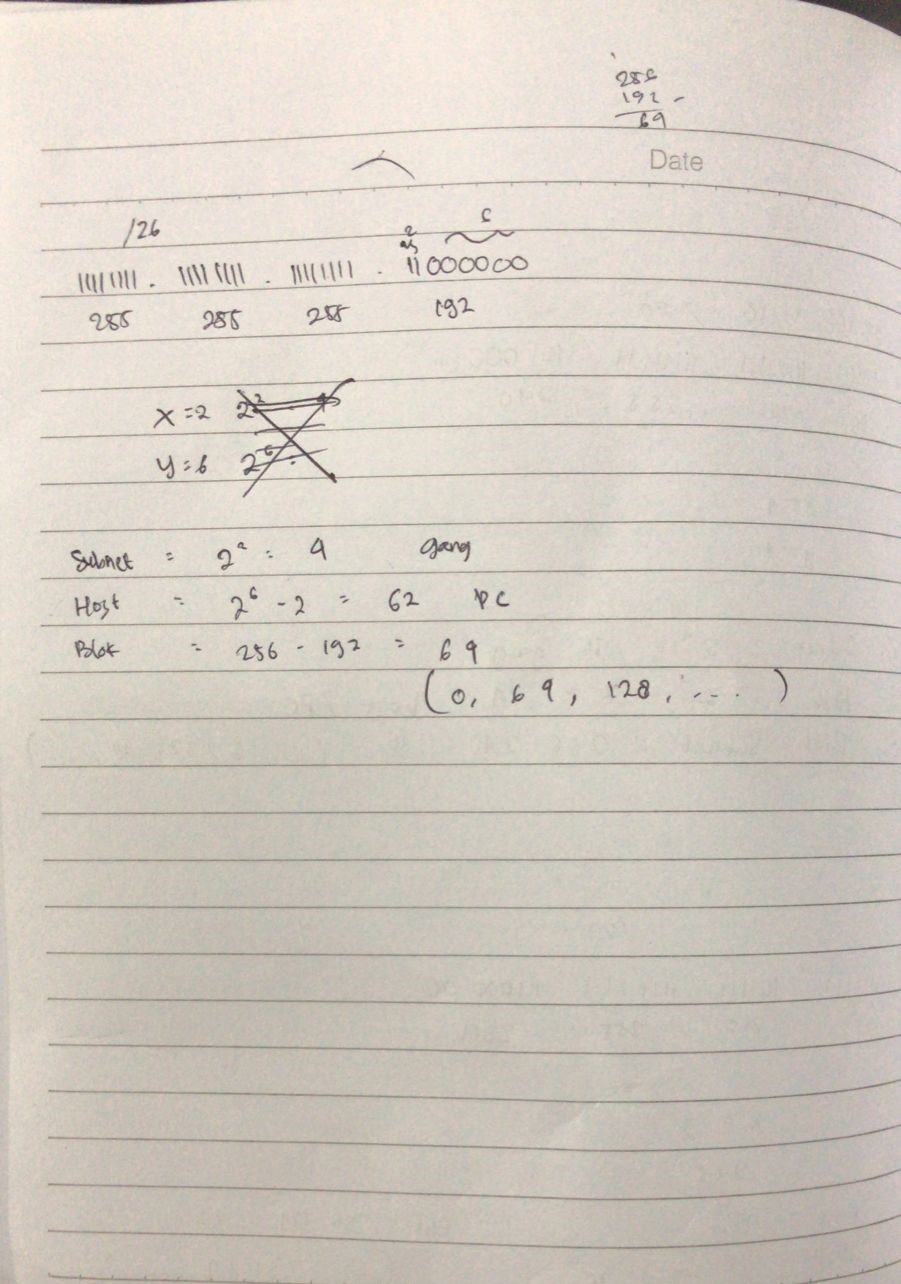 256
192 -
64
Date
/26
2 6
11111111 . 11111111 . 11111111 . 11000000
255 255 255 192
X = 2
Y = 6
Subnet = 2² = 4 gang
Host = 2⁶ - 2 = 62 PC
Blok = 256 - 192 = 64
(0, 64, 128, ....)